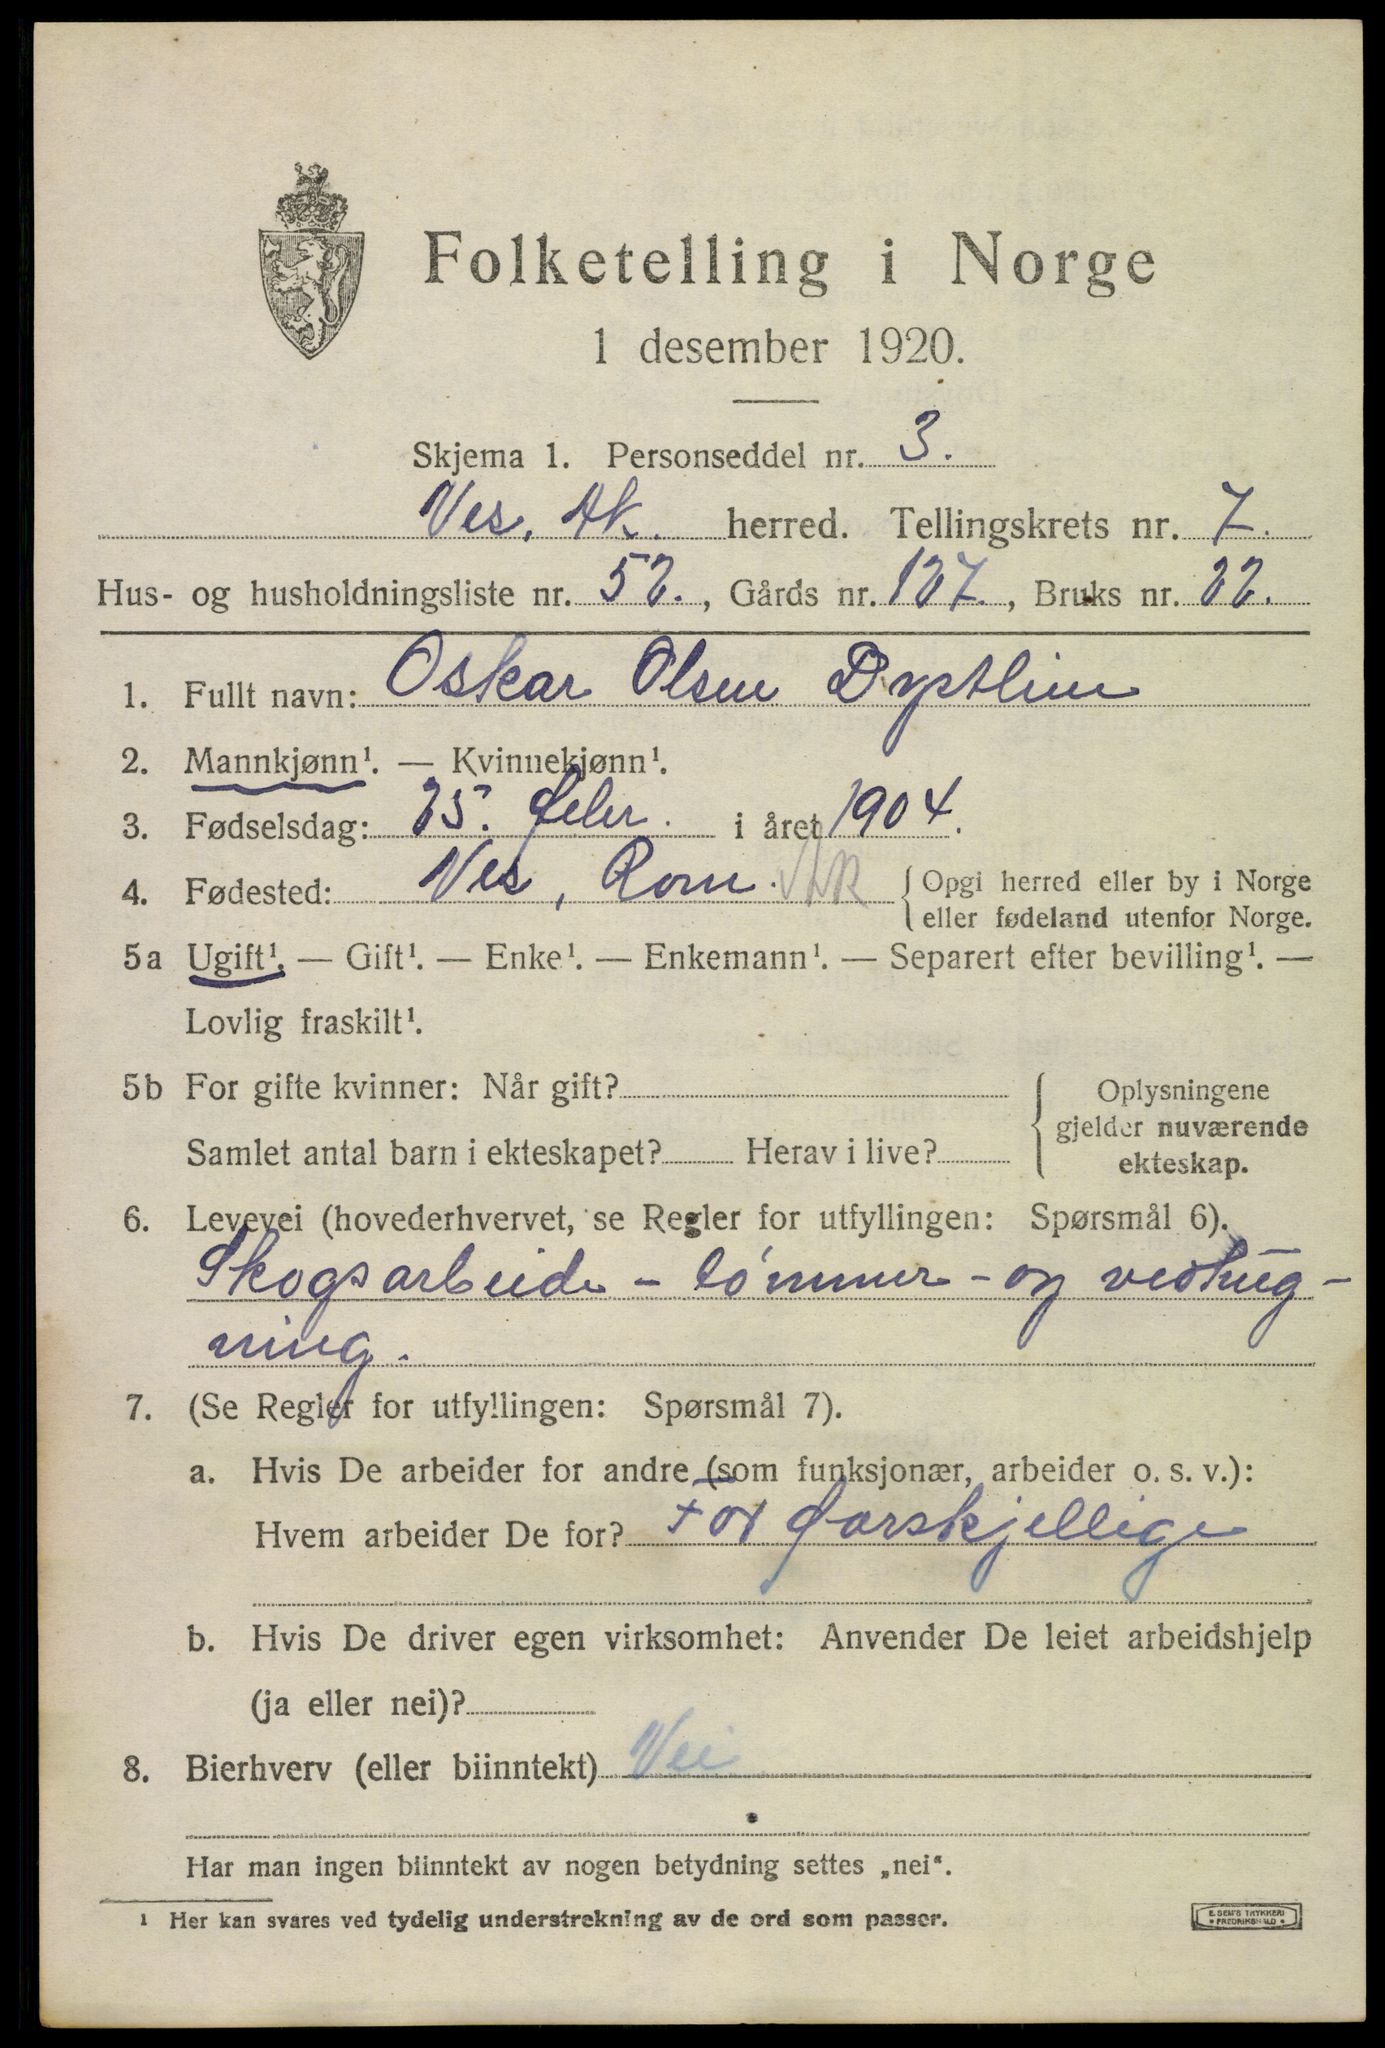 Folketelling i Norge
1 desember 1920.
Skjema 1. Personseddel nr. 3.
Nes, Ak. herred. Tellingskrets nr. 7.
Hus- og husholdningsliste nr. 52., Gårds nr. 127., Bruks nr. 22.
1. Fullt navn: Oskar Olsen Dystlien
2. Mannkjønn¹. — Kvinnekjønn¹.
3. Fødselsdag: 25. febr. i året 1904.
4. Fødested: Nes, Rom. Ak {Opgi herred eller by i Norge
eller fødeland utenfor Norge.
5a Ugift¹. — Gift¹. — Enke¹. — Enkemann¹. — Separert efter bevilling¹. —
Lovlig fraskilt¹.
5b For gifte kvinner: Når gift?
Samlet antal barn i ekteskapet? Herav i live?
Oplysningene
gjelder nuværende
ekteskap.
6. Levevei (hovederhvervet, se Regler for utfyllingen: Spørsmål 6).
Skogsarbeide - tømmer- og vedhug-
ning.
7. (Se Regler for utfyllingen: Spørsmål 7).
a. Hvis De arbeider for andre (som funksjonær, arbeider o. s. v.):
Hvem arbeider De for? For forskjellige
b. Hvis De driver egen virksomhet: Anvender De leiet arbeidshjelp
(ja eller nei)?
8. Bierhverv (eller biinntekt) Nei
Har man ingen biinntekt av nogen betydning settes „nei“.
¹ Her kan svares ved tydelig understrekning av de ord som passer.
E. SEM'S TRYKKERI
FREDRIKSHALD